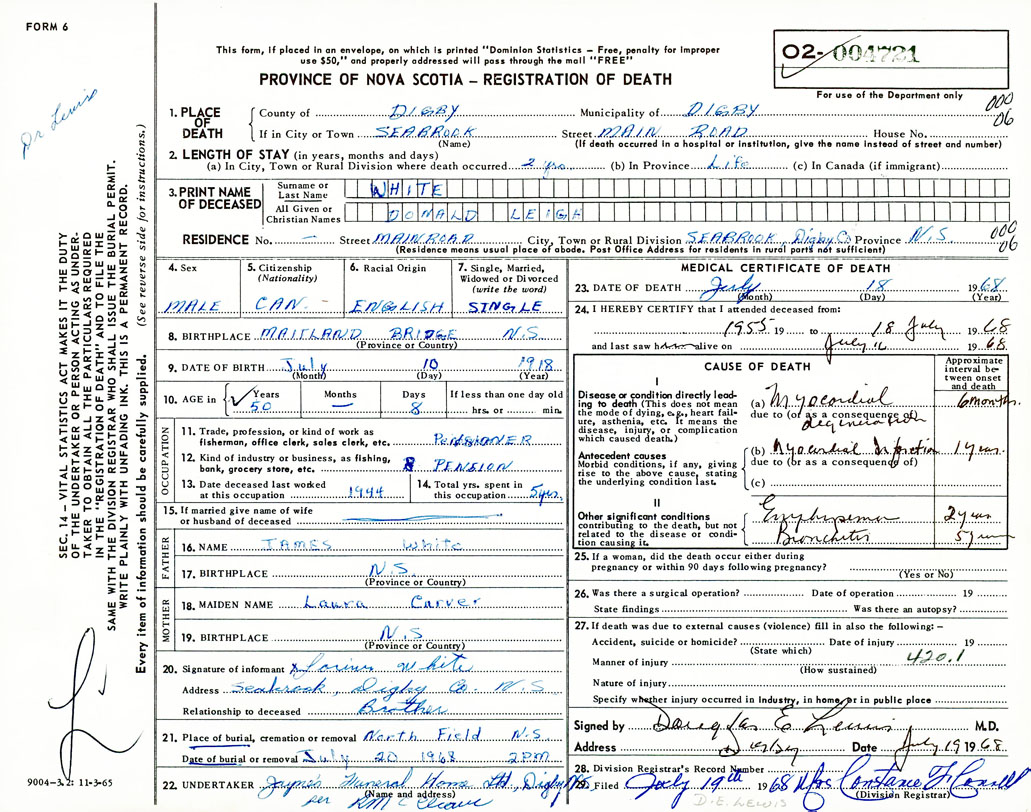 FORM 6
This form, if placed in an envelope, on which is printed "Dominion Statistics – Free, penalty for improper
use $50," and properly addressed will pass through the mail "FREE"
PROVINCE OF NOVA SCOTIA – REGISTRATION OF DEATH
02- 004721
For use of the Department only
Dr Lewis
000
06
1. PLACE OF DEATH
County of DIGBY Municipality of DIGBY
If in City or Town SEABROOK Street MAIN ROAD House No.
(Name) (If death occurred in a hospital or institution, give the name instead of street and number)
2. LENGTH OF STAY (in years, months and days)
(a) In City, Town or Rural Division where death occurred 2 yrs. (b) In Province Life (c) In Canada (if immigrant)
3. PRINT NAME OF DECEASED
Surname or Last Name WHITE
All Given or Christian Names DONALD LEIGH
RESIDENCE No. — Street MAIN ROAD City, Town or Rural Division SEABROOK, Digby Co Province N.S.
000
06
(Residence means usual place of abode. Post Office Address for residents in rural parts not sufficient)
SEC. 14 – VITAL STATISTICS ACT MAKES IT THE DUTY
OF THE UNDERTAKER OR PERSON ACTING AS UNDER-
TAKER TO OBTAIN ALL THE PARTICULARS REQUIRED
IN THE "REGISTRATION OF DEATH" AND TO FILE THE
SAME WITH THE DIVISION REGISTRAR WHO SHALL ISSUE THE BURIAL PERMIT.
WRITE PLAINLY WITH UNFADING INK. THIS IS A PERMANENT RECORD.
Every item of information should be carefully supplied. (See reverse side for instructions.)
4. Sex
MALE
5. Citizenship
(Nationality)
CAN.
6. Racial Origin
ENGLISH
7. Single, Married,
Widowed or Divorced
(write the word)
SINGLE
8. BIRTHPLACE MAITLAND BRIDGE N.S.
(Province or Country)
9. DATE OF BIRTH July 10 1918
(Month) (Day) (Year)
10. AGE in Years Months Days If less than one day old
50 — 8 hrs. or min.
OCCUPATION
11. Trade, profession or kind of work as
fisherman, office clerk, sales clerk, etc. PENSIONER
12. Kind of industry or business, as fishing,
bank, grocery store, etc. PENSION
13. Date deceased last worked
at this occupation 1944
14. Total yrs. spent in
this occupation 5 yrs.
15. If married give name of wife
or husband of deceased
FATHER
16. NAME JAMES White
17. BIRTHPLACE N.S.
(Province or Country)
MOTHER
18. MAIDEN NAME Laura Carver
19. BIRTHPLACE N.S
(Province or Country)
20. Signature of informant x White
Address Seabrook, Digby Co. N.S
Relationship to deceased Brother
21. Place of burial, cremation or removal North Field N.S.
Date of burial or removal July 20 1968 2 PM.
22. UNDERTAKER Jayne's Funeral Home Ltd, Digby NS.
(Name and address)
per
9004-3.2: 11-3-65
MEDICAL CERTIFICATE OF DEATH
23. DATE OF DEATH July 18 1968
(Month) (Day) (Year)
24. I HEREBY CERTIFY that I attended deceased from:
1955 19 to 18 July 1968
and last saw h alive on July 16 1968.
CAUSE OF DEATH
Approximate
interval be-
tween onset
and death
I
Disease or condition directly lead-
ing to death (This does not mean
the mode of dying, e.g., heart fail-
ure, asthenia, etc. It means the
disease, injury, or complication
which caused death.)
(a) Myocardial 6 months.
due to (or as a consequence of)
degeneration
Antecedent causes
Morbid conditions, if any, giving
rise to the above cause, stating
the underlying condition last.
(b) Myocardial Infarction 1 year.
due to (or as a consequence of)
(c)
II
Other significant conditions
contributing to the death, but not
related to the disease or condi-
tion causing it.
Emphysema 2 years
Bronchitis 5 years
25. If a woman, did the death occur either during
pregnancy or within 90 days following pregnancy?
(Yes or No)
26. Was there a surgical operation? Date of operation 19
State findings Was there an autopsy?
27. If death was due to external causes (violence) fill in also the following: –
Accident, suicide or homicide? Date of injury 19
(State which)
Manner of injury 420.1
(How sustained)
Nature of injury
Specify whether injury occurred in Industry, in home, or in public place
Signed by Douglas E Lewis M.D.
Address Digby Date July 19 1968.
28. Division Registrar's Record Number
29. Filed July 19th 1968 Mrs Constance F. Connell
(Division Registrar)
D.E. LEWIS